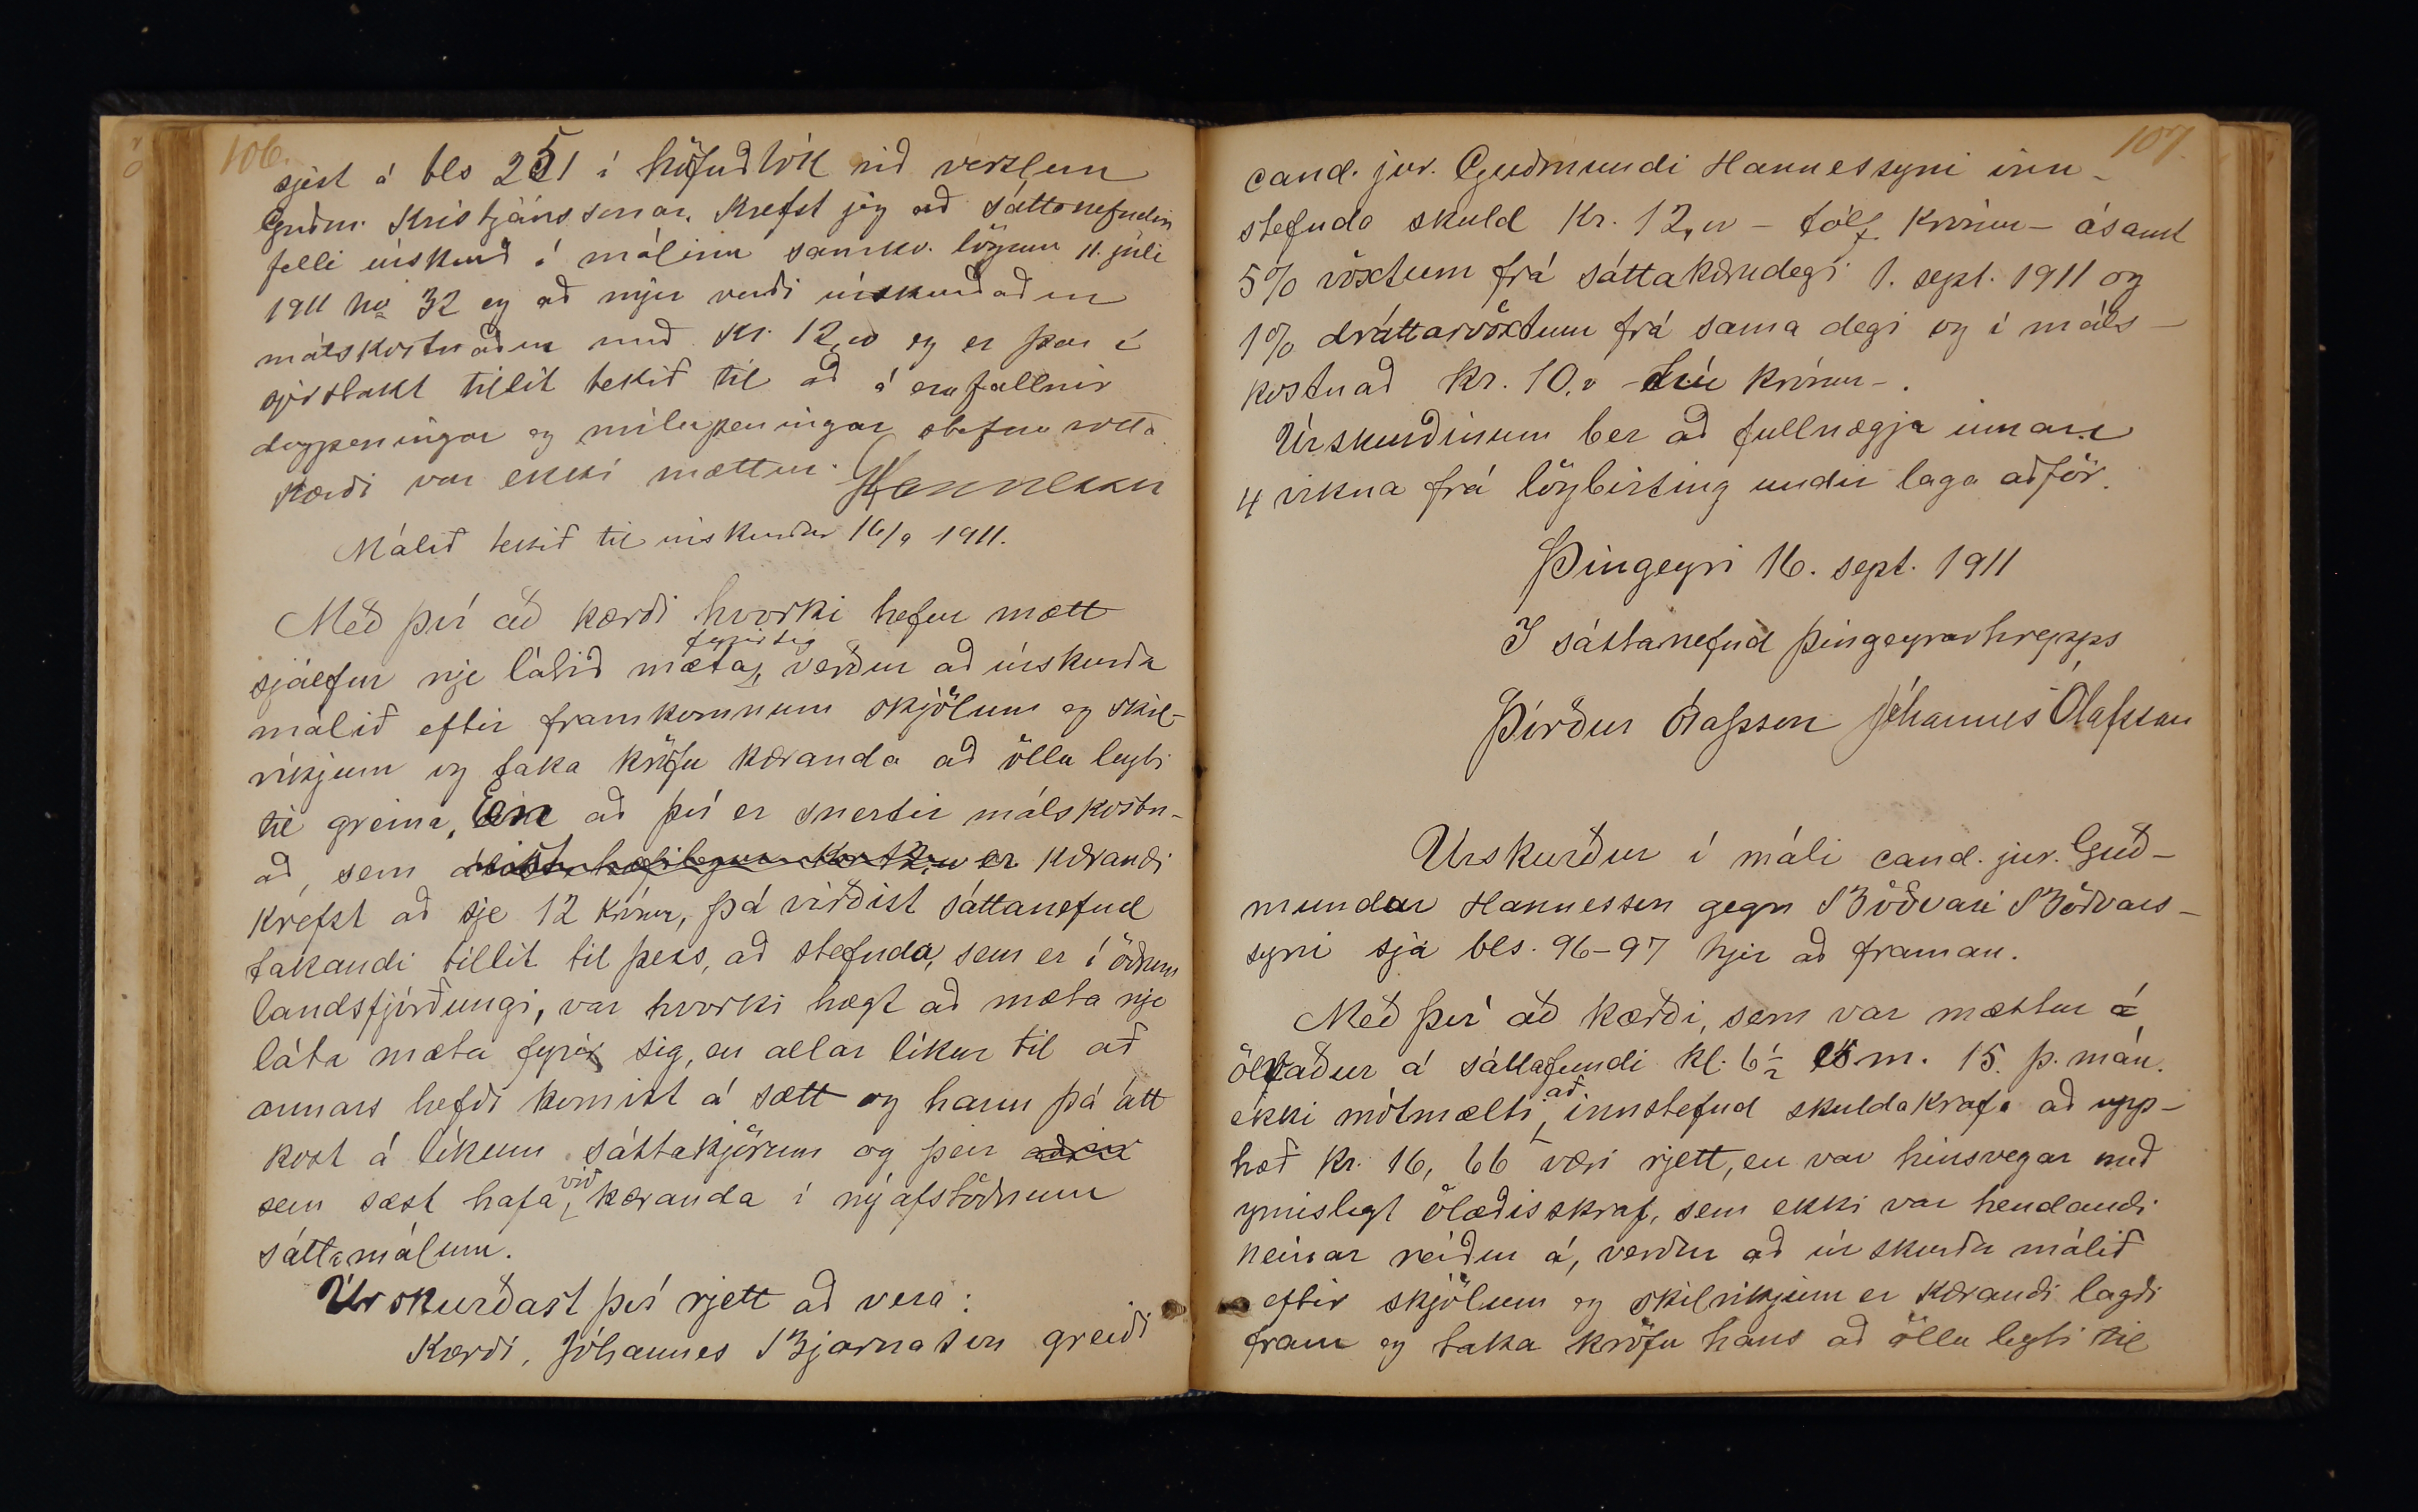 106.
sjest á bls 251 í höfuðbók við verzlun
Guðm. Kristjánssonar. Krefst jeg að sáttanefndin
felli úrskurð í málinu samkv. lögum 11. júli
1911 no 32 og að mjer verði úrskurðaður
málskostnaður með Kr. 12,00 og er þar í
sjerstakt tillit tekið til að á eru fallnir
dagpeningar og mílupeningar stefnuvotta.
Kærði var ekki mættur. GHannesson
Málið tekið til úrskurðar 16/9 1911.
Með því að kærði hvorki hefur mætt
sjálfur nje látið mæta fyrir sig, verður að úrskurða
málið eftir framkomnum skjölum og skil-
ríkjum og taka kröfu kæranda að öllu leyti
til greina, En að því er snertir málskostn-
að, sem er kærandi
krefst að sje 12 krónur, þá virðist sáttanefnd
takandi tillit til þess, að stefnda, sem er í öðrum
landsfjórðungi, var hvorki hægt að mæta nje
láta mæta fyrir sig, en allar líkur til að
annars hefði komist á sætt og hann þá átt
kost á líkum sáttakjörum og þeir aðrir
sem sæst hafa við kæranda í nýafstöðnum
sáttamálum.
Úrskurðast því rjett að vera:
Kærði, Jóhannes Bjarnason greiði
107.
cand. jur. Guðmundi Hannessyni inn-
stefnda skuld Kr. 12,00 - tólf krónur - ásamt
5% vöxtum frá sáttakærudegi 1. sept. 1911 og
1% dráttarvöxtum frá sama degi og í máls-
kostnað kr. 10,00 - tíu krónur -.
Úrskurðinum ber að fullnægja innan
4 vikna frá lögbirting undir laga aðför.
Þingeyri 16. sept. 1911
Í sáttanefnd Þingeyrarhrepps
Þórður Ólafsson Jóhannes Ólafsson
Úrskurður í máli cand. jur. Guð-
mundar Hannesson gegn Böðvari Böðvars-
syni sjá bls. 96-97 hjer að framan.
Með því að kærði, sem var mættur á
ölvaður á sáttafundi kl. 6½ e.m. 15. þ. mán.
ekki mótmælti að innstefnd skuldakrafa að upp-
hæð kr. 16,66 væri rjett, en var hinsvegar með
ymislegt ölæðisskraf, sem ekki var hendandi
neinar reiður á, verður að úrskurða málið
eftir skjölum og skilríkjum er kærandi lagði
fram og taka kröfu hans að öllu leyti til